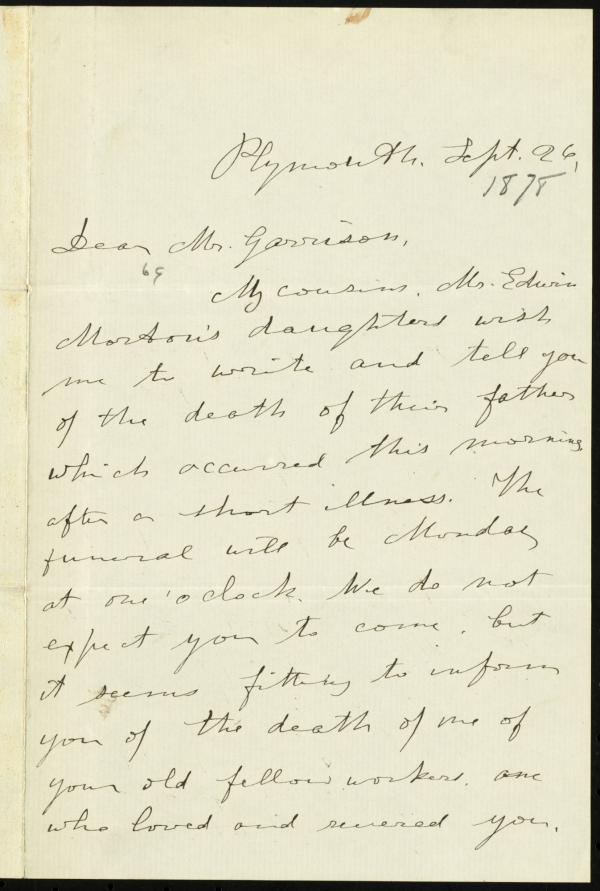 Plymouth. Sept. 26,
1878
Dear Mr. Garrison,
My cousins, Mr. Edwin
Morton's daughters wish
me to write and tell you
of the death of their father
which occurred this morning
after a short illness. The
funeral will be Monday
at one o'clock. We do not
expect you to come, but
it seems fitting to inform
you of the death of one of
your old fellow workers, one
who loved and revered you.